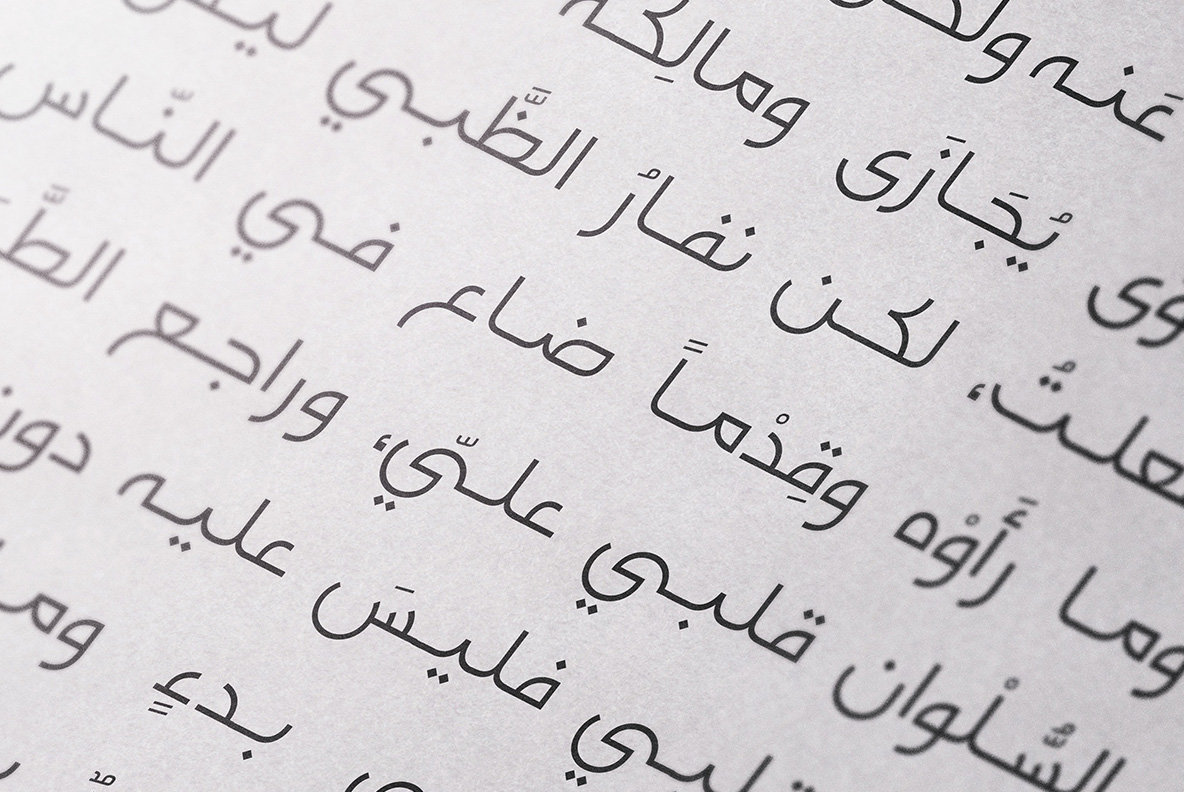 عَنه ولكن
يُجَازَى ومالِكه
لكن نفارُ الظَّبي ليس
وما رَأَوْه وقِدْماً ضاع في النّاس
السُّلْوان قلبي عليّ، وراجع
قلبي فليسَ عليه دون
بدءٍ وما